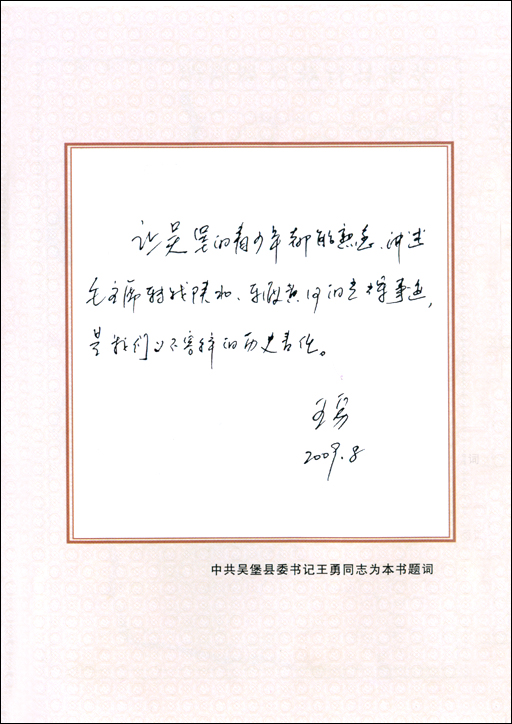 让吴堡的青少年都能熟悉、讲述
毛主席转战陕北、东渡黄河的光辉事迹，
是我们义不容辞的历史责任。
王勇
2009.8
中共吴堡县委书记王勇同志为本书题词